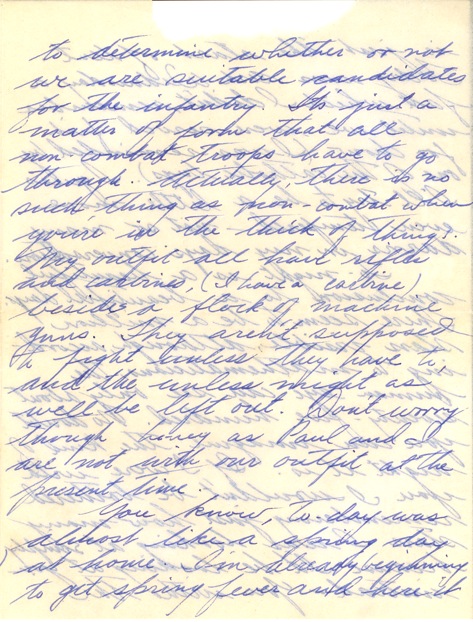 to determine whether or not
we are suitable candidates
for the infantry. It's just a
matter of form that all
non-combat troops have to go
through. Actually, there is no
such thing as non-combat when
you're in the thick of things.
My outfit all have rifles
and carbines, (I have a carbine)
beside a flock of machine
guns. They aren't supposed
to fight unless they have to,
and the unless might as
well be left out. Don't worry
though honey as Paul and I
are not with our outfit at the
present time.
You know, to-day was
almost like a spring day
at home. I'm already beginning
to get spring fever and here it